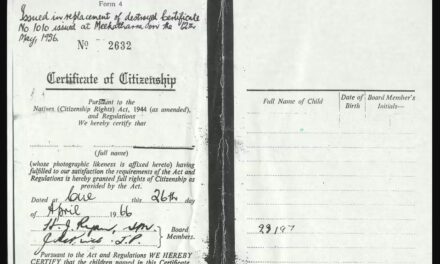 Form 4
Issued in replacement of destroyed Certificate
No 1010 issued at Meekatharra on the 12th
May, 1956.
No 2632
Certificate of Citizenship
Pursuant to the
Natives (Citizenship Rights) Act, 1944 (as amended),
and Regulations
We hereby certify that
(full name)
(whose photographic likeness is affixed hereto) having
fulfilled to our satisfaction the requirements of the Act and
Regulations is hereby granted full rights of Citizenship as
provided by the Act.
Dated at Cue this 26th day
of April 1966
Board
Members.
J.P.
Pursuant to the Act and Regulations WE HEREBY
CERTIFY that the children named in this Certificate
Full Name of Child
Date of
Birth
Board Member's
Initials—
23197